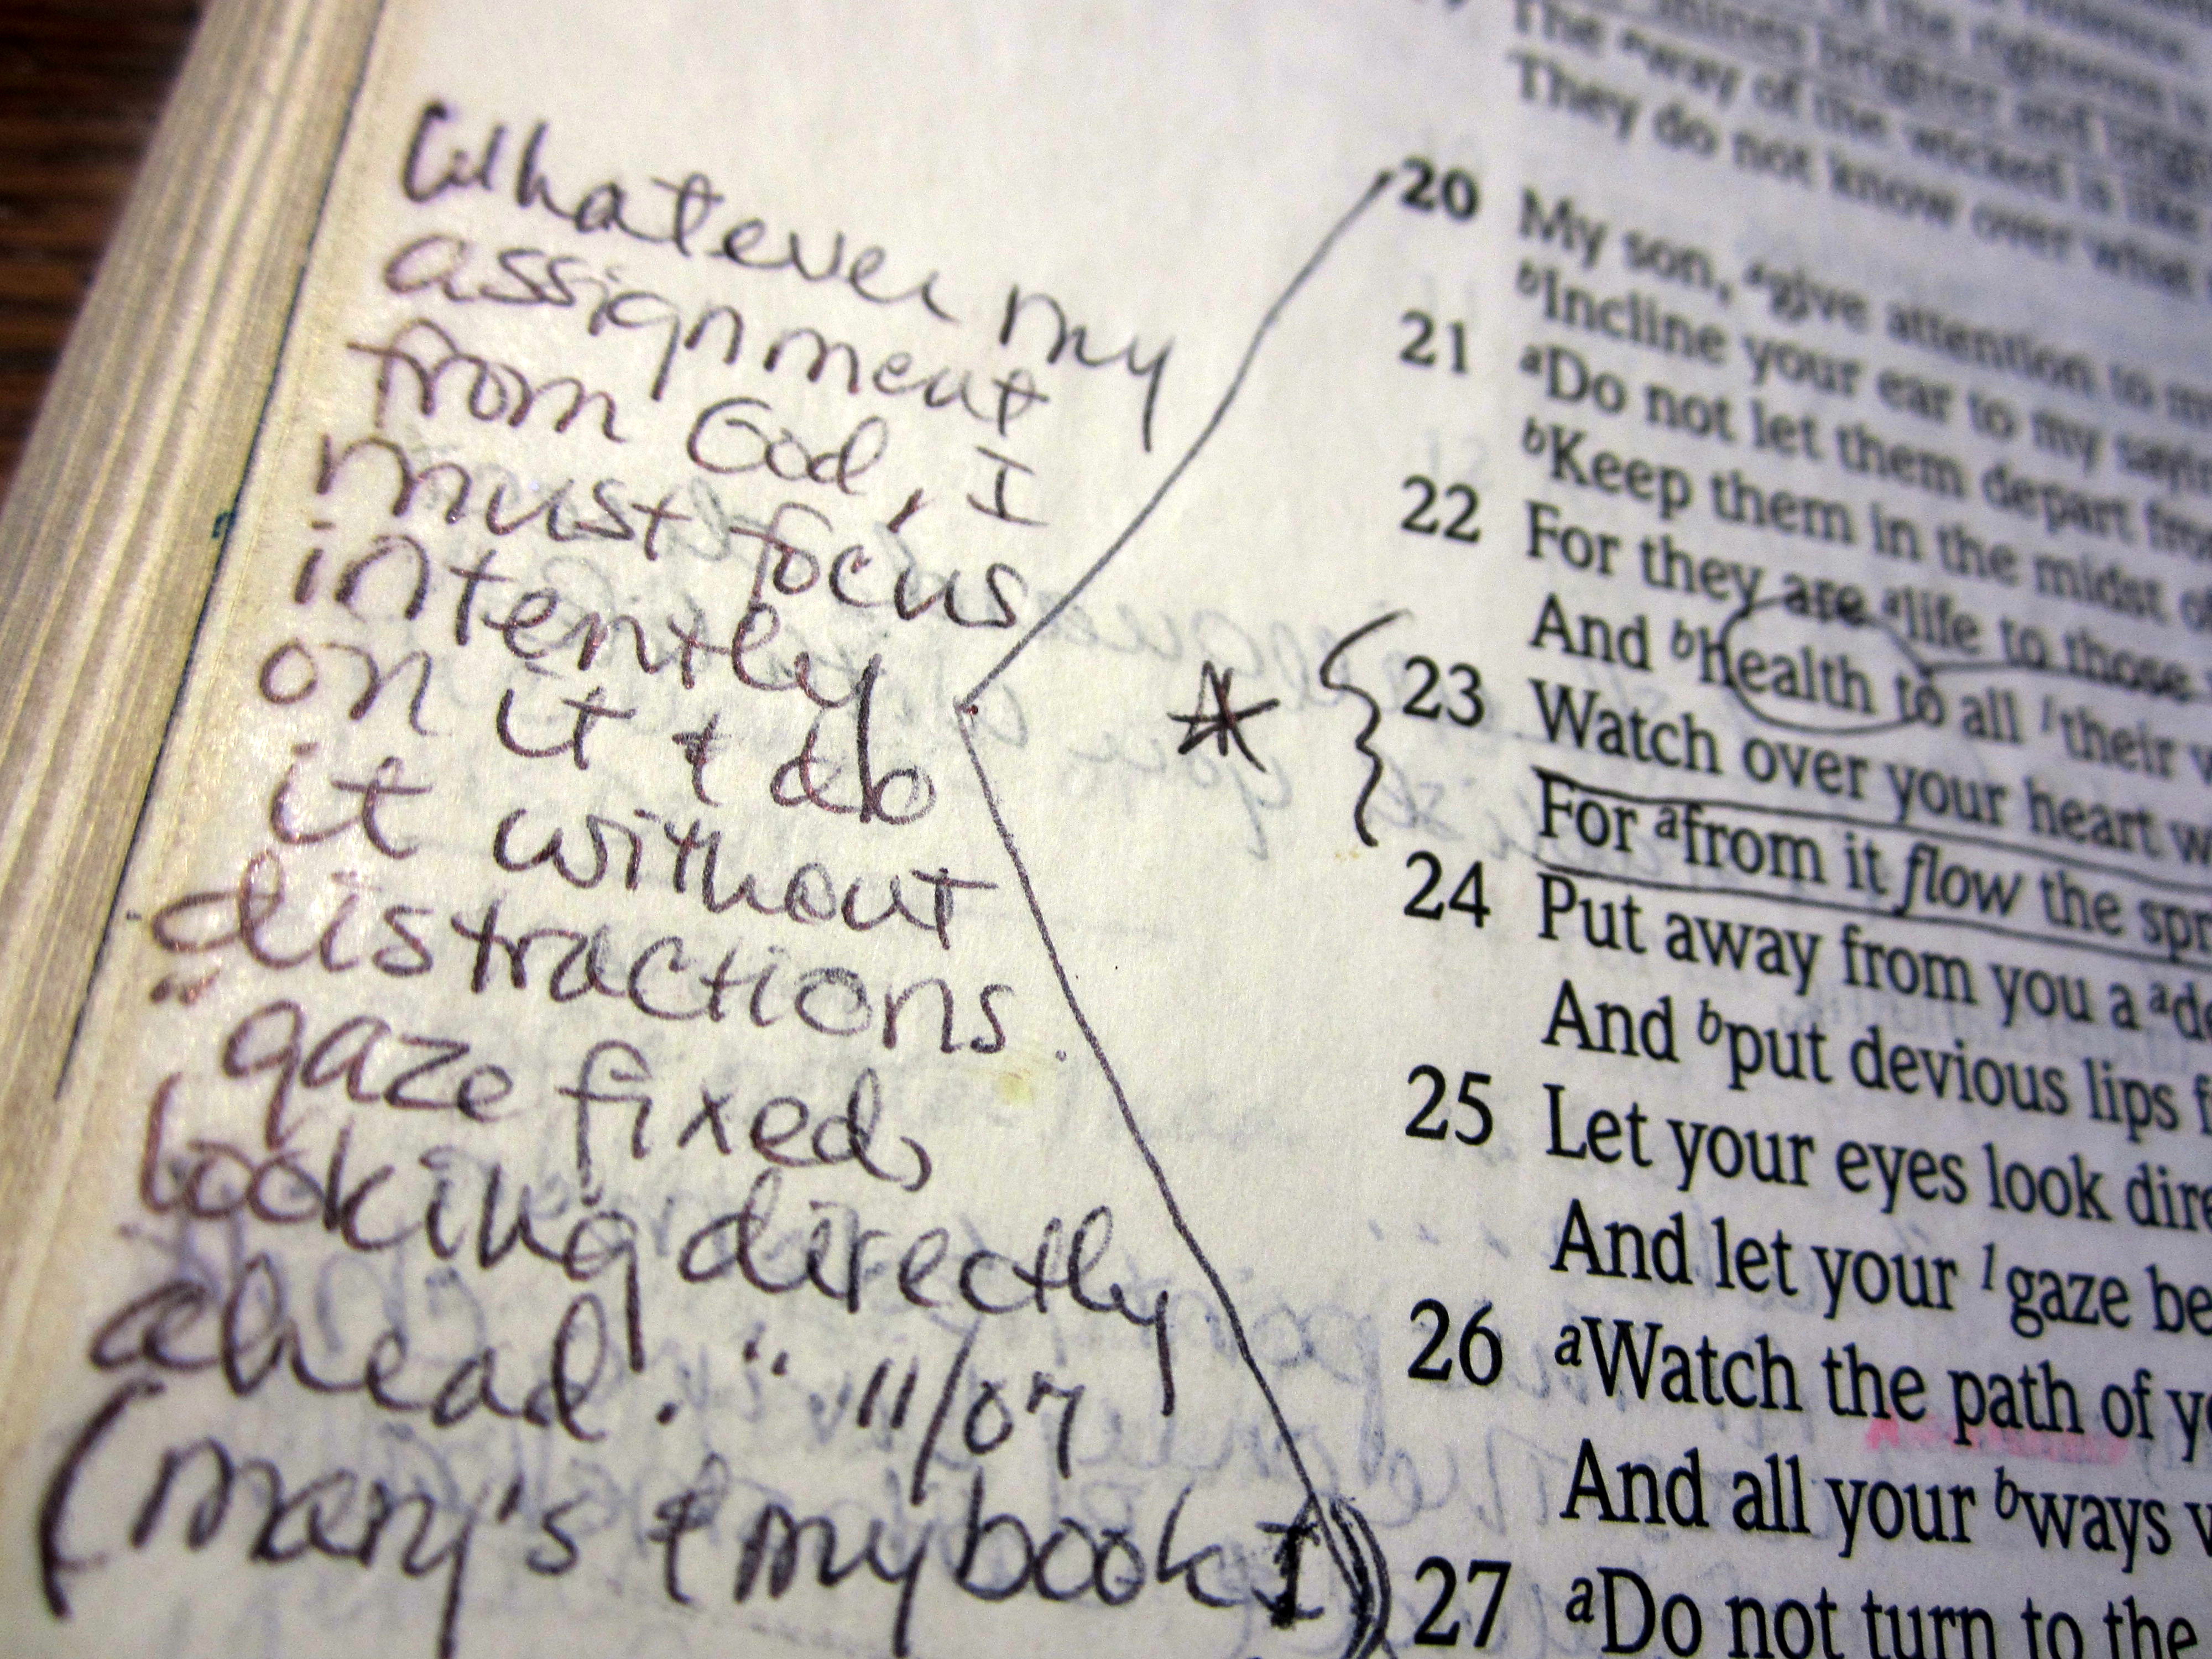 Whatever my
assignment
from God, I
must focus
intently
on it & do
it without
distractions.
"gaze fixed,
looking directly
ahead." 11/07
(Mary's & my book I)
The way of the wicked is like
They do not know over what
20 My son, ᵃgive attention to
ᵇIncline your ear to my
21 ᵃDo not let them depart
ᵇKeep them in the midst
22 For they are ᵃlife to those
And ᵇhealth to all ˡtheir
23 Watch over your heart
For ᵃfrom it flow the
24 Put away from you a
And ᵇput devious lips
25 Let your eyes look
And let your ˡgaze be
26 ᵃWatch the path of
And all your ᵇways
27 ᵃDo not turn to the